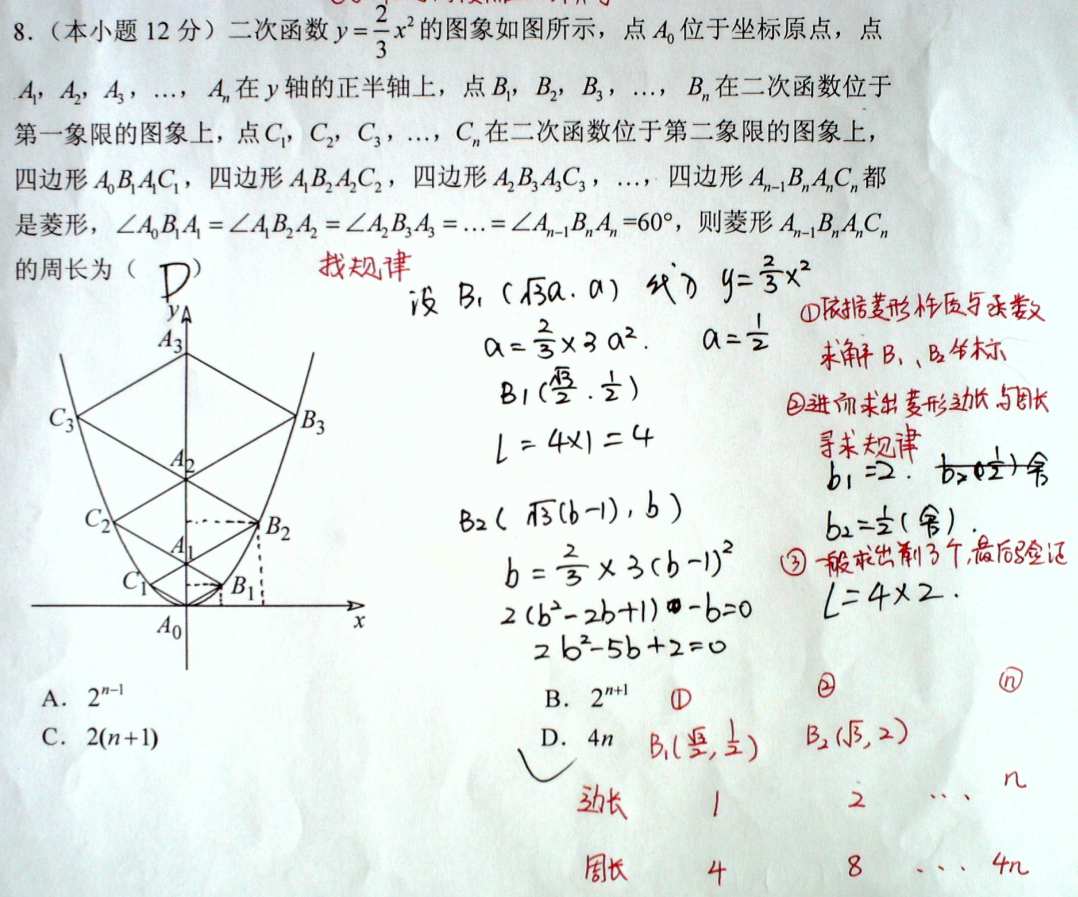 8.（本小题 12 分）二次函数 y=2/3x²的图象如图所示，点 A₀ 位于坐标原点，点
A₁，A₂，A₃，…，Aₙ 在 y 轴的正半轴上，点 B₁，B₂，B₃，…，Bₙ 在二次函数位于
第一象限的图象上，点 C₁，C₂，C₃，…，Cₙ 在二次函数位于第二象限的图象上，
四边形 A₀B₁A₁C₁，四边形 A₁B₂A₂C₂，四边形 A₂B₃A₃C₃，…，四边形 Aₙ₋₁BₙAₙCₙ 都
是菱形，∠A₀B₁A₁=∠A₁B₂A₂=∠A₂B₃A₃=…=∠Aₙ₋₁BₙAₙ=60°，则菱形 Aₙ₋₁BₙAₙCₙ
的周长为（ D ）
找规律
设 B₁(√3a.a) 代入 y=2/3x²
a=2/3×3a². a=1/2
B₁(√3/2.1/2)
L=4×1=4
B₂(√3(b-1),b)
b=2/3×3(b-1)²
2(b²-2b+1)-b=0
2b²-5b+2=0
①依据菱形性质与函数
求解 B₁、B₂坐标
②进而求出菱形边长与周长
寻求规律
b₁=2. b₂(1/2)舍
b₂=1/2(舍).
③一般求出前3个,最后验证
L=4×2.
y
A₃
C₃
B₃
A₂
C₂
B₂
A₁
C₁
B₁
A₀
x
A. 2ⁿ⁻¹
B. 2ⁿ⁺¹
C. 2(n+1)
D. 4n
① ② ⓝ
B₁(√3/2,1/2) B₂(√3,2)
边长 1 2 ... n
周长 4 8 ... 4n